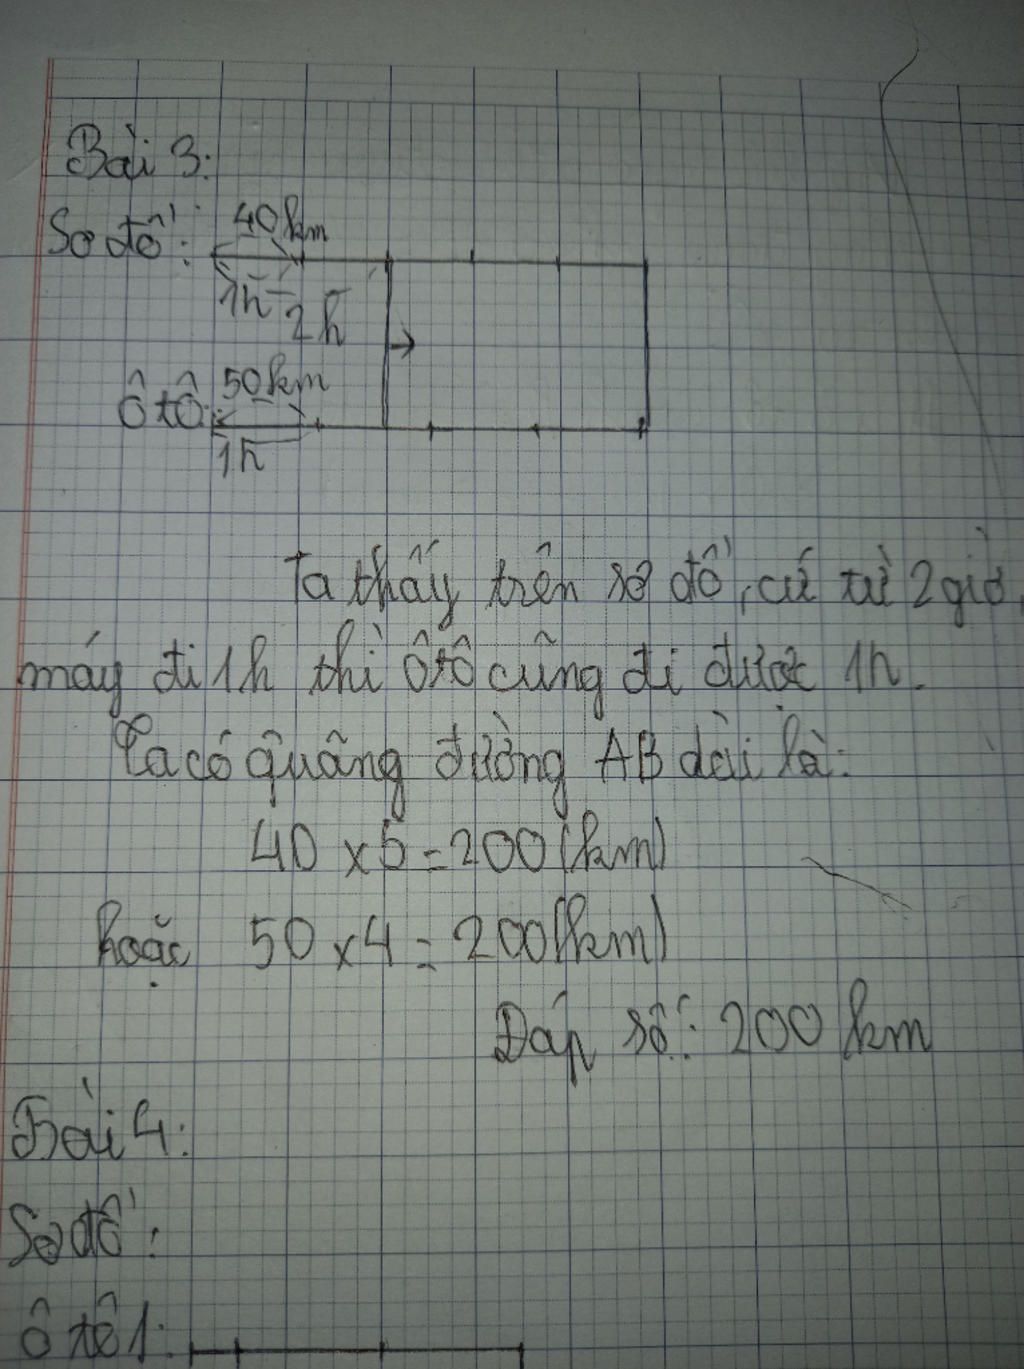 Bài 3:
Sơ đồ: 40km
1h 2h
50km
Ô tô:
1h
Ta thấy trên sơ đồ, cứ từ 2 giờ,
máy đi 1h thì ô tô cũng đi được 1h.
Ta có quãng đường AB dài là:
40 x 5 = 200 (km)
hoặc 50 x 4 = 200 (km)
Đáp số: 200 km
Bài 4:
Sơ đồ:
Ô tô 1: